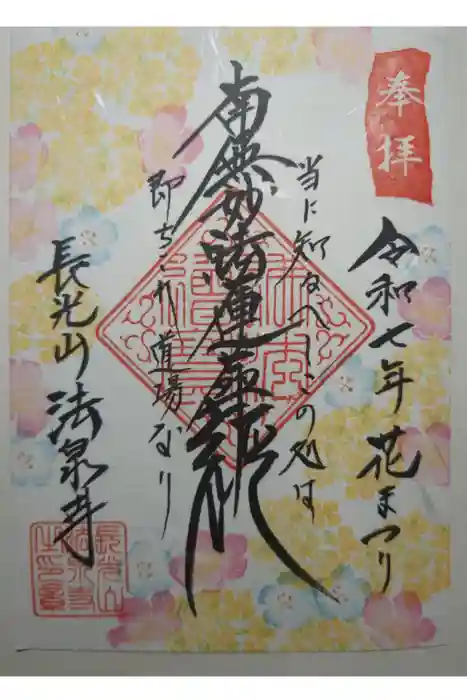 奉拝
令和七年 花まつり
当に知るべしこの処は
南無妙法蓮華経
即ちこれ道場なり
長光山 法泉寺